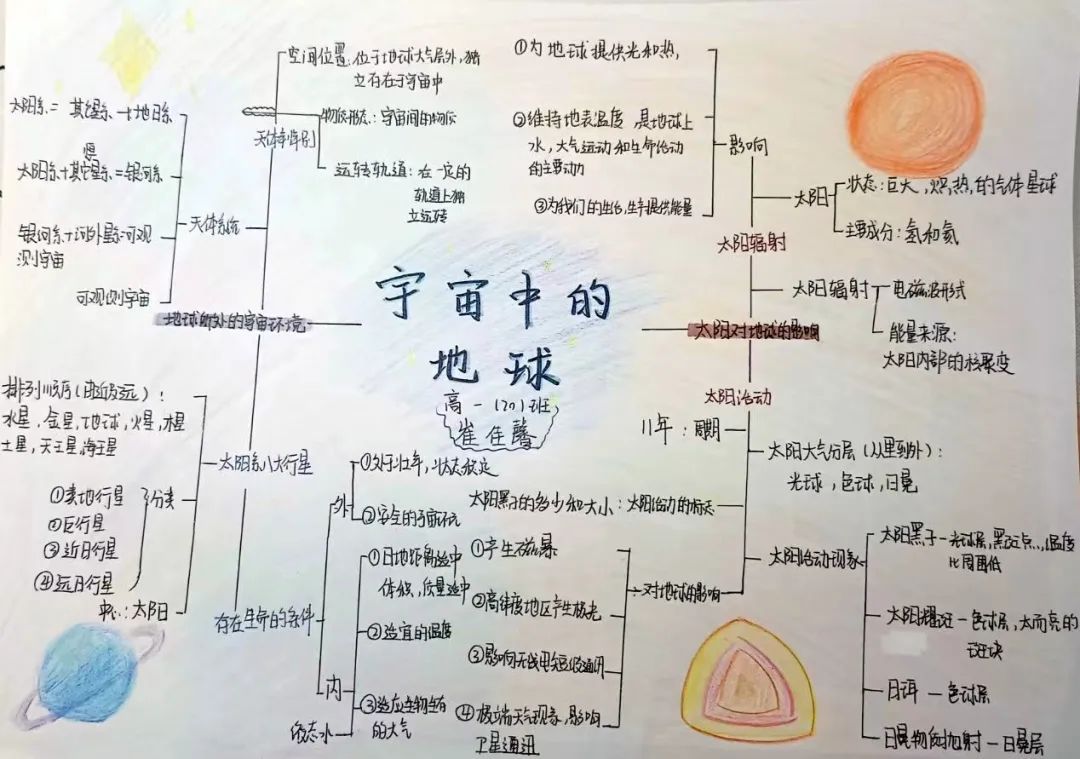 宇宙中的
地球
高一（20）班
崔佳馨
地球所处的宇宙环境
天体判别
空间位置：位于地球大气层外，独
立存在于宇宙中
物质形态：宇宙间的物质
运转轨道：在一定的
轨道上独
立运转
天体系统
太阳系 = 其它星系 + 地月系
太阳系+其它恒星系=银河系
银河系+河外星系=可观
测宇宙
可观测宇宙
太阳系八大行星
排列顺序（由近及远）：
水星，金星，地球，火星，木星
土星，天王星，海王星
分类
①类地行星
②巨行星
③近日行星
④远日行星
中心：太阳
存在生命的条件
外
①处于壮年，状态稳定
②安全的宇宙环境
内
①日地距离适中
体积，质量适中
②适宜的温度
③适应生物生存
的大气
液态水
太阳对地球的影响
太阳辐射
影响
①为地球提供光和热，
②维持地表温度 是地球上
水，大气运动和生命活动
的主要动力
③为我们的生活，生产提供能量
太阳
状态：巨大，炽热，的气体星球
主要成分：氢和氦
太阳辐射
电磁波形式
能量来源：
太阳内部的核聚变
太阳活动
11年：周期
太阳大气分层（从里到外）：
光球，色球，日冕
太阳黑子的多少和大小：太阳活动的标志
太阳活动现象
太阳黑子-光球层，黑斑点，温度
比周围低
太阳耀斑-色球层，大而亮的
斑块
日珥-色球层
日冕物质抛射-日冕层
对地球的影响
①产生磁暴
②高纬度地区产生极光
③影响无线电短波通讯
④极端天气现象，影响
卫星通讯